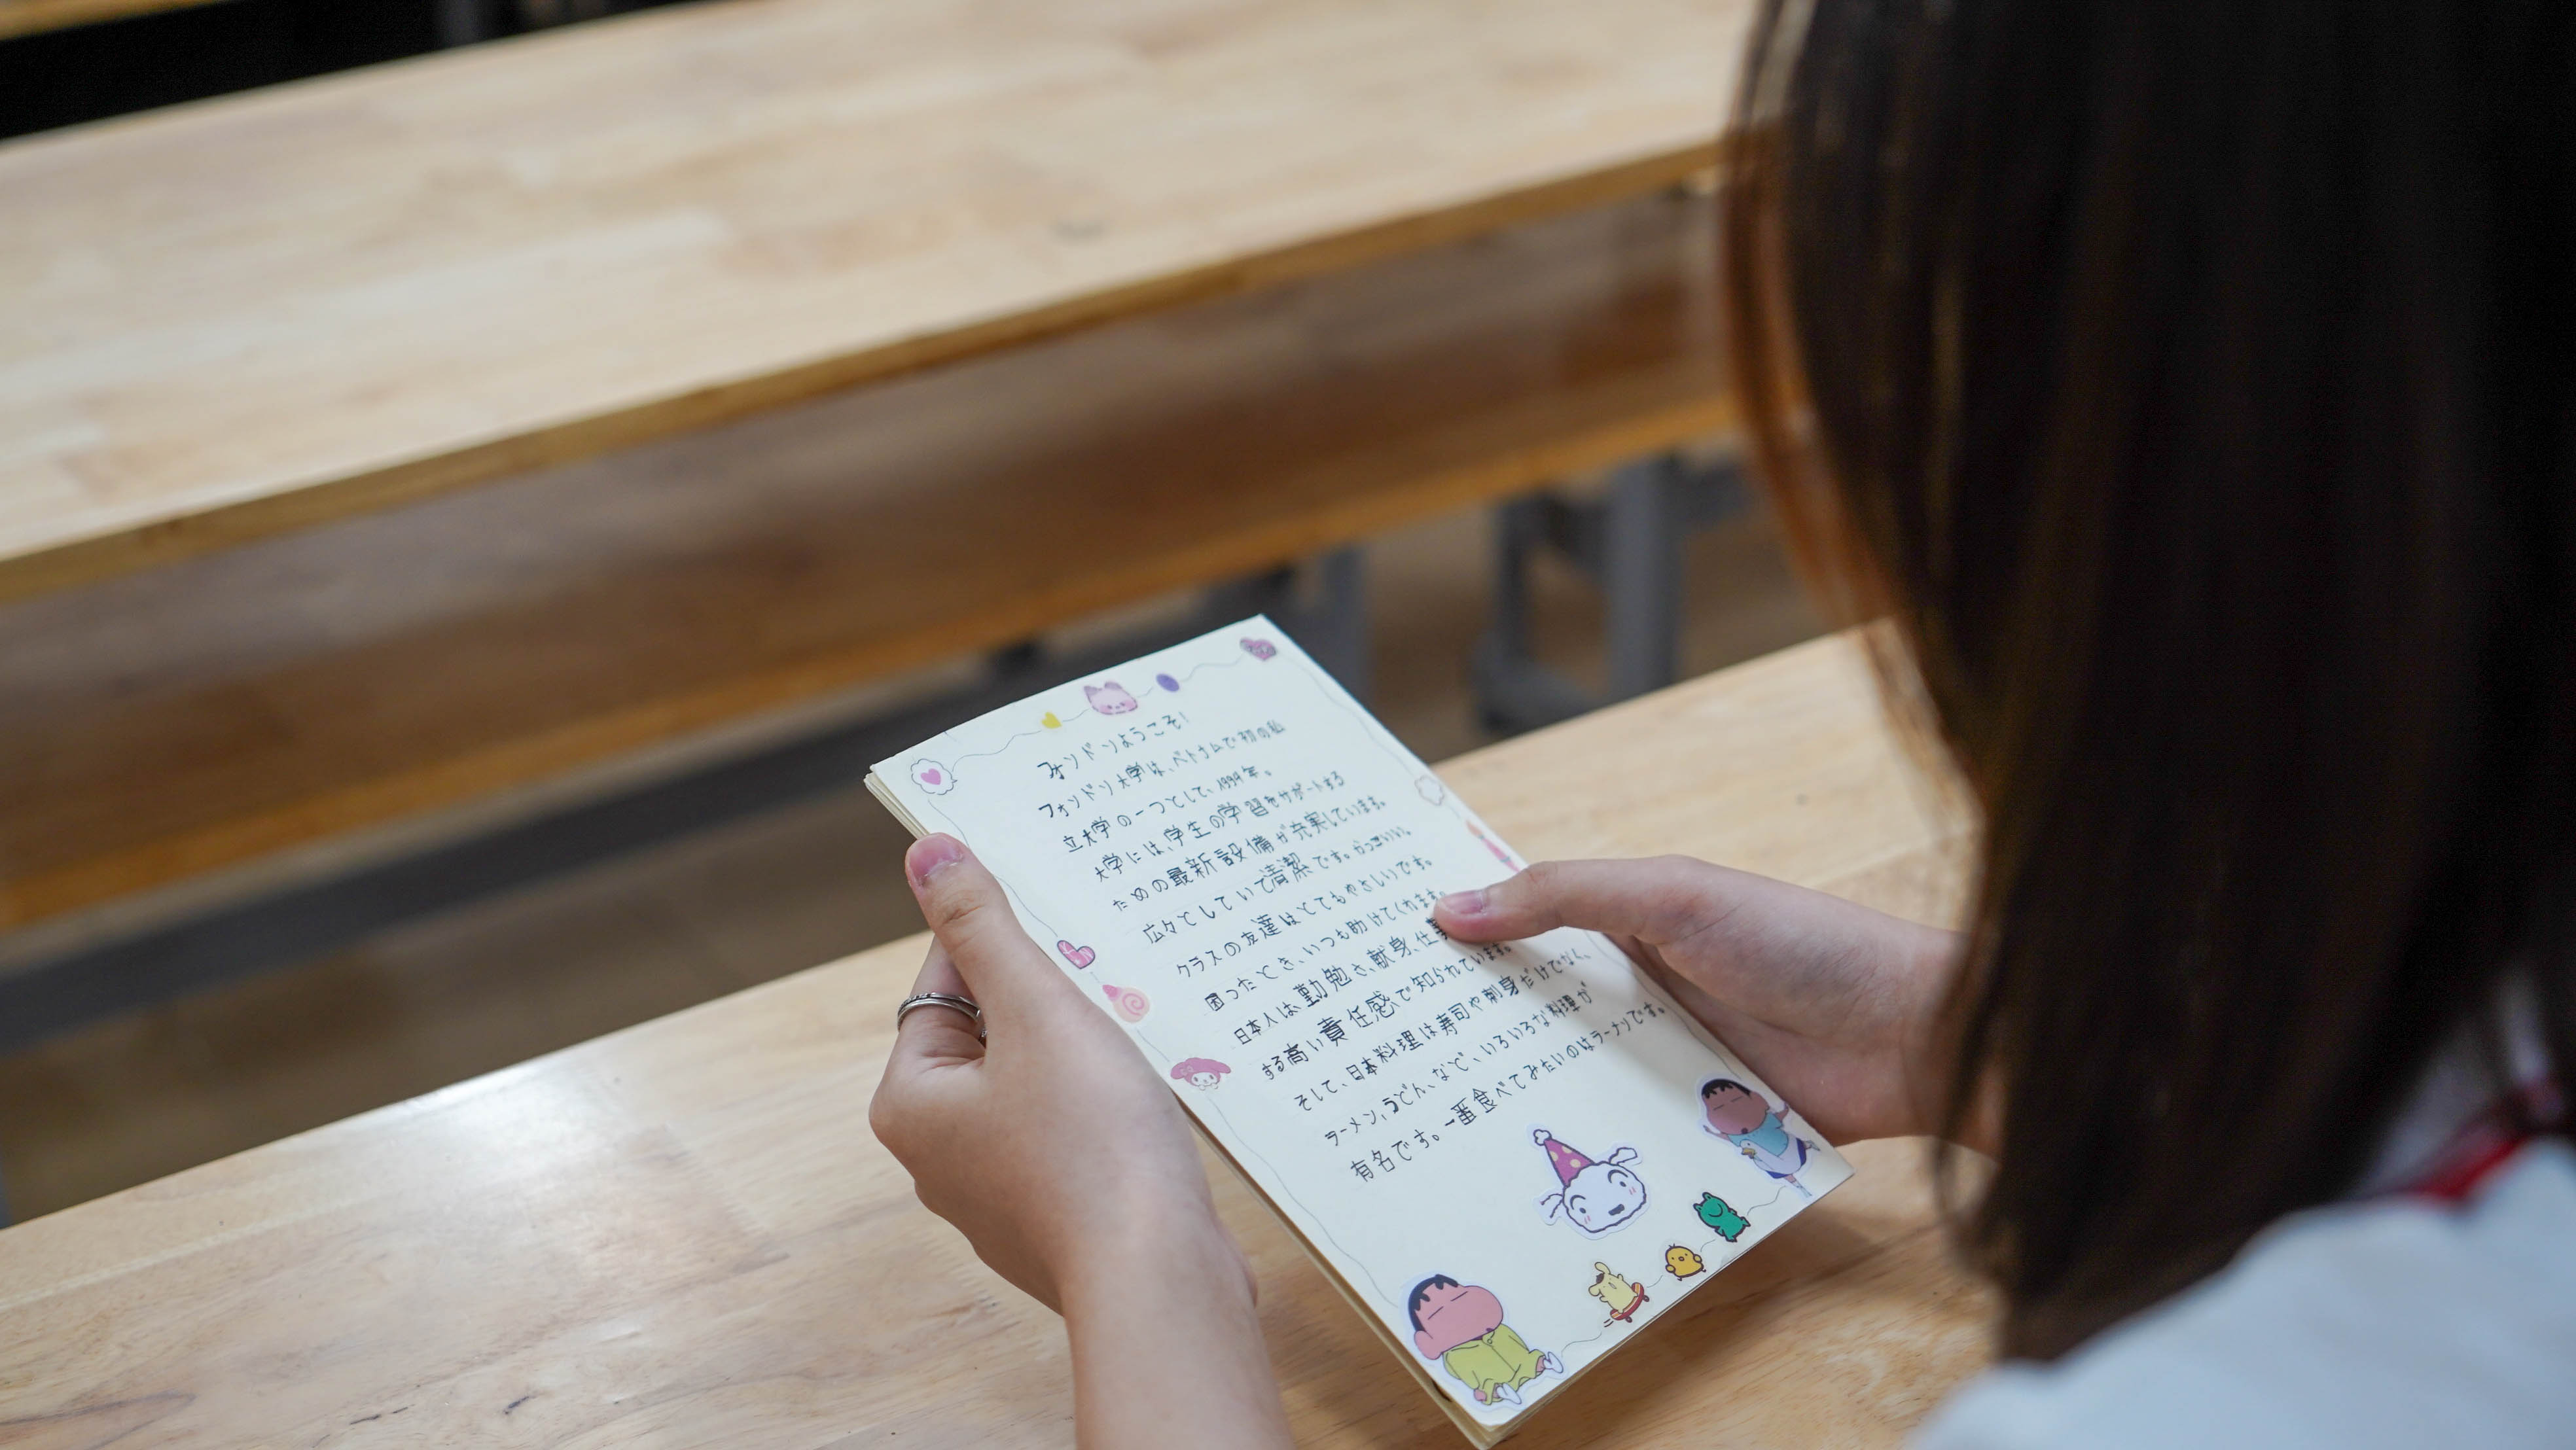 フォンドンようこそ!
フォンドン大学は、ベトナムで初の私
立大学の一つとして、1994年。
大学には、学生の学習をサポートする
ための最新設備が充実しています。
広々としていて清潔です。かっこいい。
クラスの友達はとてもやさしいです。
困ったとき、いつも助けてくれます。
日本人は、勤勉さ、献身、仕事
する高い責任感で知られています。
そして、日本料理は寿司や刺身だけでなく、
ラーメン、うどん、など、いろいろな料理が
有名です。一番食べてみたいのはラーナンです。